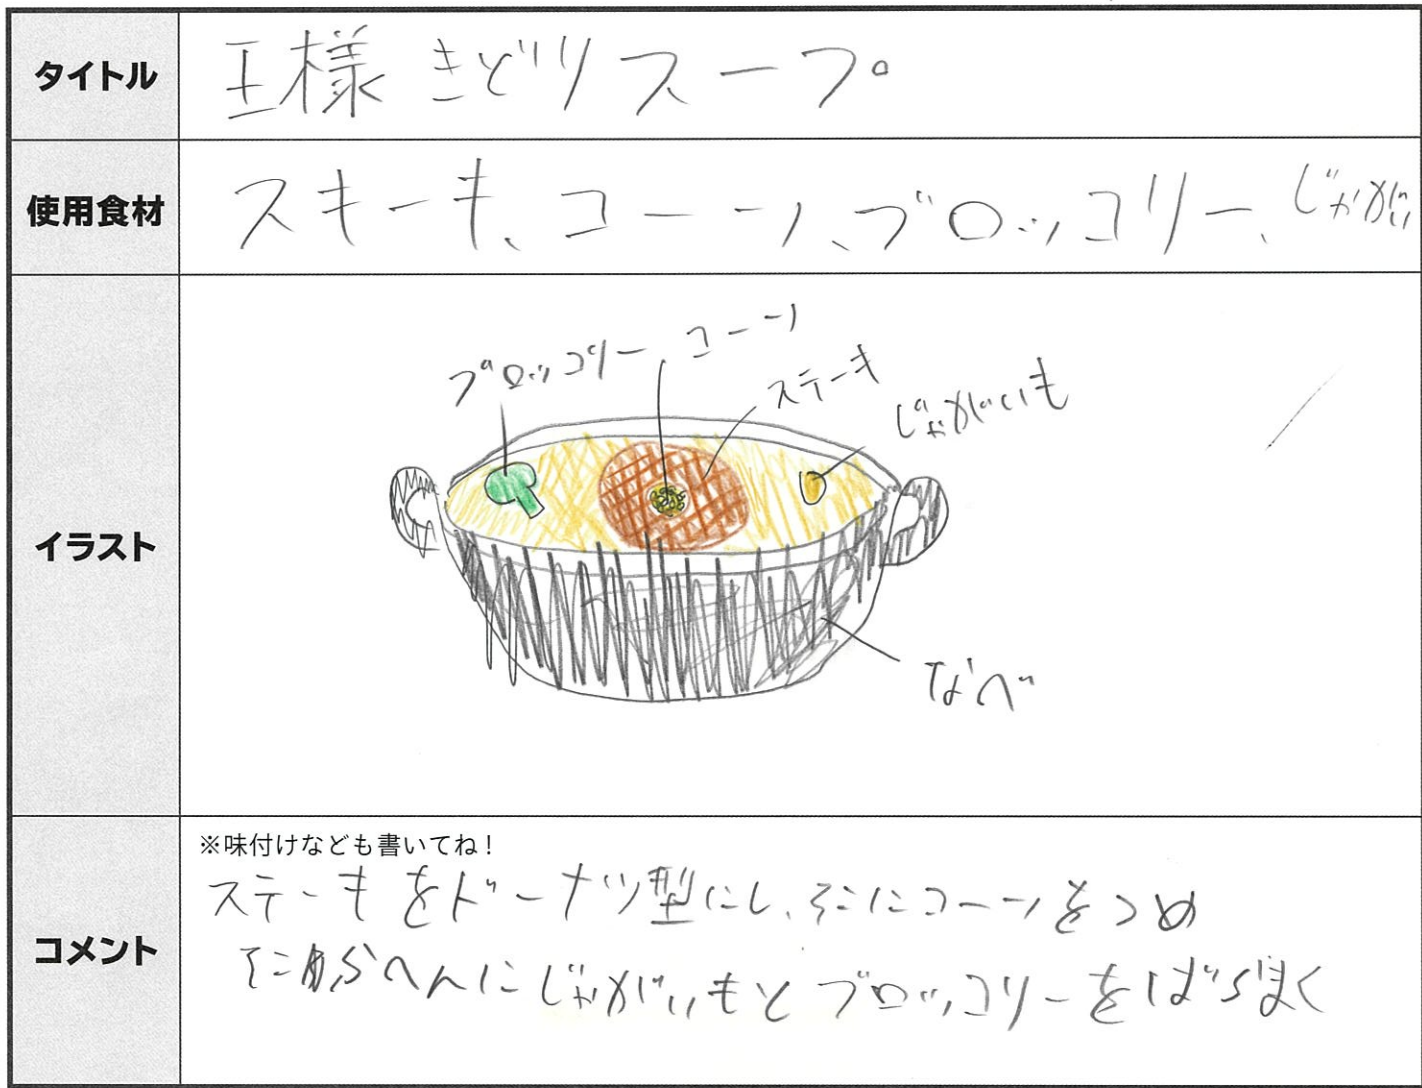 タイトル
王様きどりスープ
使用食材
スキーキ、コーン、ブロッコリー、じゃがい
イラスト
ブロッコリー
コーン
ステーキ
じゃがいも
なべ
コメント
※味付けなども書いてね！
ステーキをドーナツ型にし、そこにコーンをつめ
へんにじゃがいもとブロッコリーをばらまく